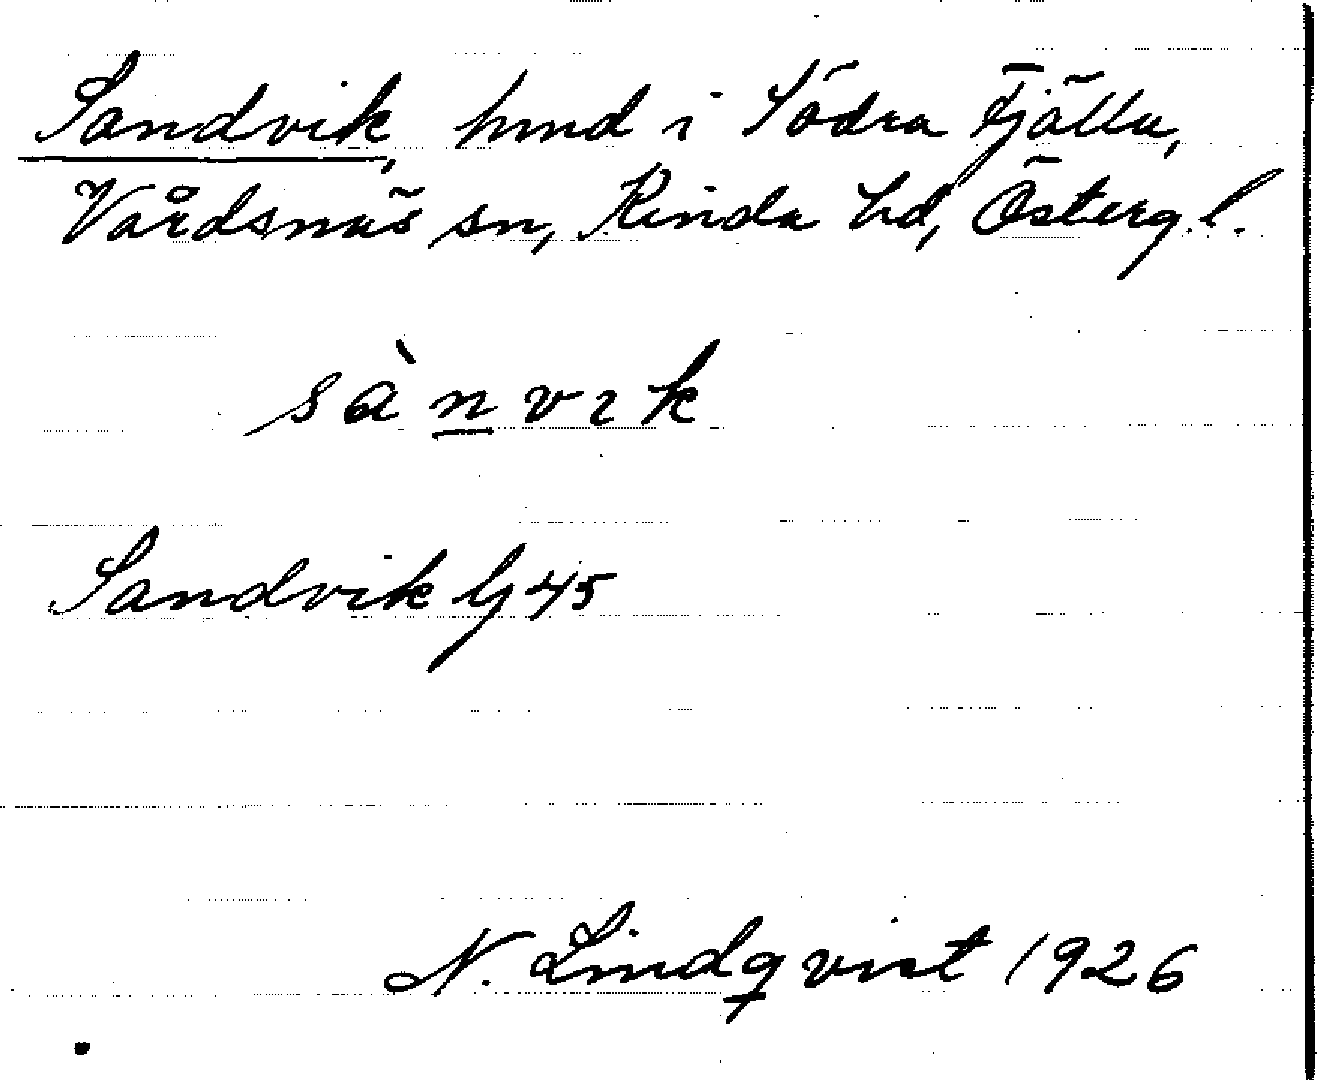 Sandvik, hmd i Södra Fjälla,
Vårdsnäs sn, Kinda hd, Östergl.
sànvık
Sandvik Gj 45
N. Lindqvist 1926